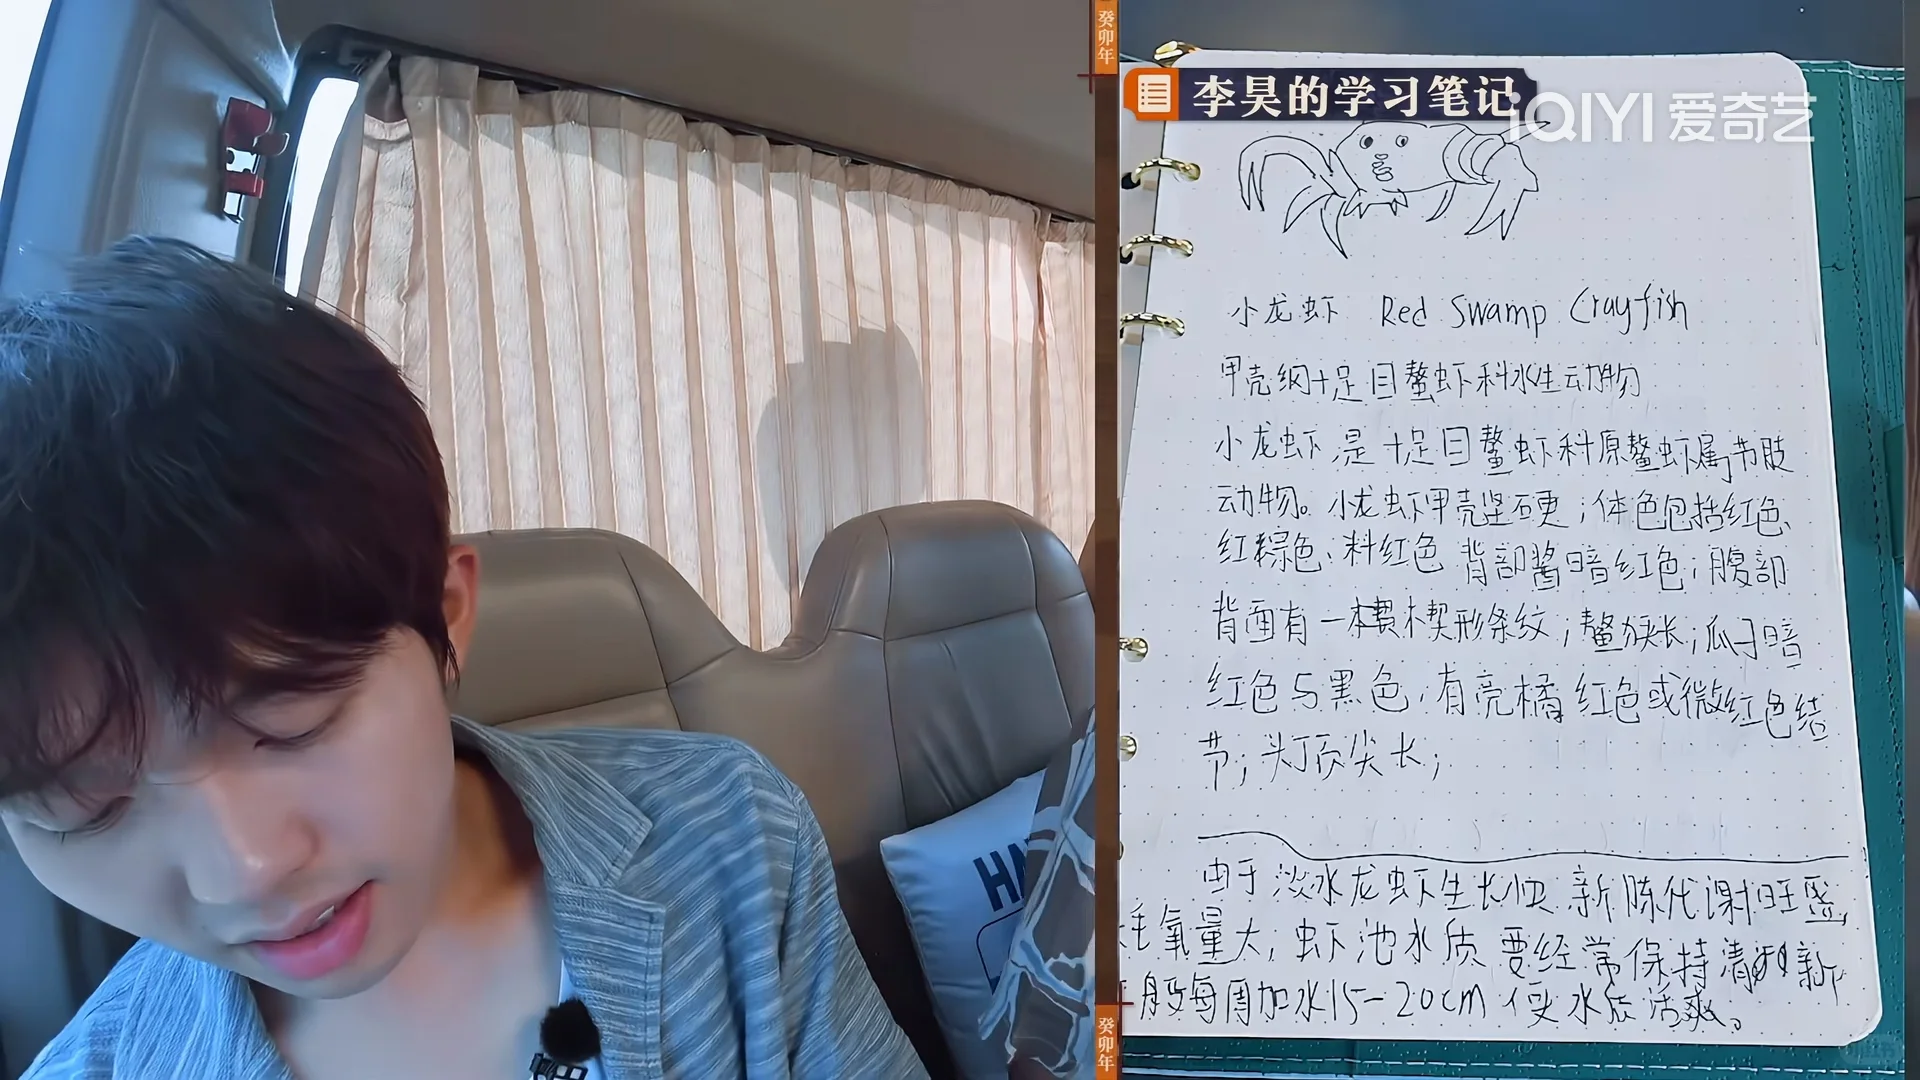 癸卯年
李昊的学习笔记
iQIYI 爱奇艺
小龙虾 Red Swamp Crayfish
甲壳纲十足目螯虾科水生动物
小龙虾是十足目螯虾科原螯虾属节肢
动物。小龙虾甲壳坚硬;体色包括红色、
红棕色、料红色 背部酱暗红色;腹部
背面有一楔形条纹;螯狭长;爪子暗
红色与黑色,有亮橘红色或微红色结
节;头顶尖长;
由于淡水龙虾生长快 新陈代谢旺盛,
耗氧量大;虾池水质要经常保持清新
般每周加水15-20cm 使水质活爽。
HA
癸卯年